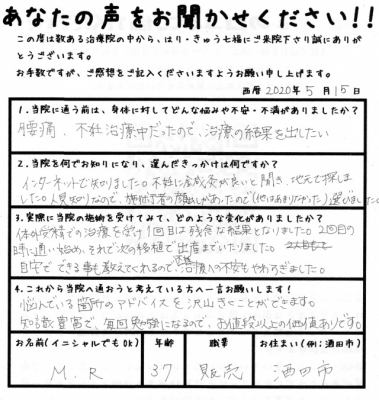 あなたの声をお聞かせください!!
この度は数ある治療院の中から、はり・きゅう七福にご来院下さり誠にありが
とうございます。
お手数ですが、ご感想をご記入くださいますようお願い申し上げます。
西暦 2020年 5月 15日
1.当院に通う前は、身体に対してどんな悩みや不安・不満がありましたか?
腰痛、不妊治療中だったので、治療の結果を出したい
2.当院を何でお知りになり、選んだきっかけは何ですか?
インターネットで知りました。不妊に鍼灸が良いと聞き、地元で探しま
した。人見知りなので、施術者の顔出しがあったので(他はあまりなかった)選びました
3.実際に当院の施術を受けてみて、どのような変化がありましたか?
体外受精での治療を受け1回目は残念な結果となりました。2回目の
時に通い始め、それで次の移植で出産までいたりました。
自宅でできる事も教えてくれるので、治療への不安もやわらぎました。
4.これから当院へ通おうと考えている方へ一言お願いします!
悩んでいる箇所のアドバイスを沢山きくことができます。
知識豊富で、毎回勉強になるので、お値段以上の価値ありです。
お名前(イニシャルでもOK) 年齢 職業 お住まい(例:酒田市)
M.R 37 販売 酒田市